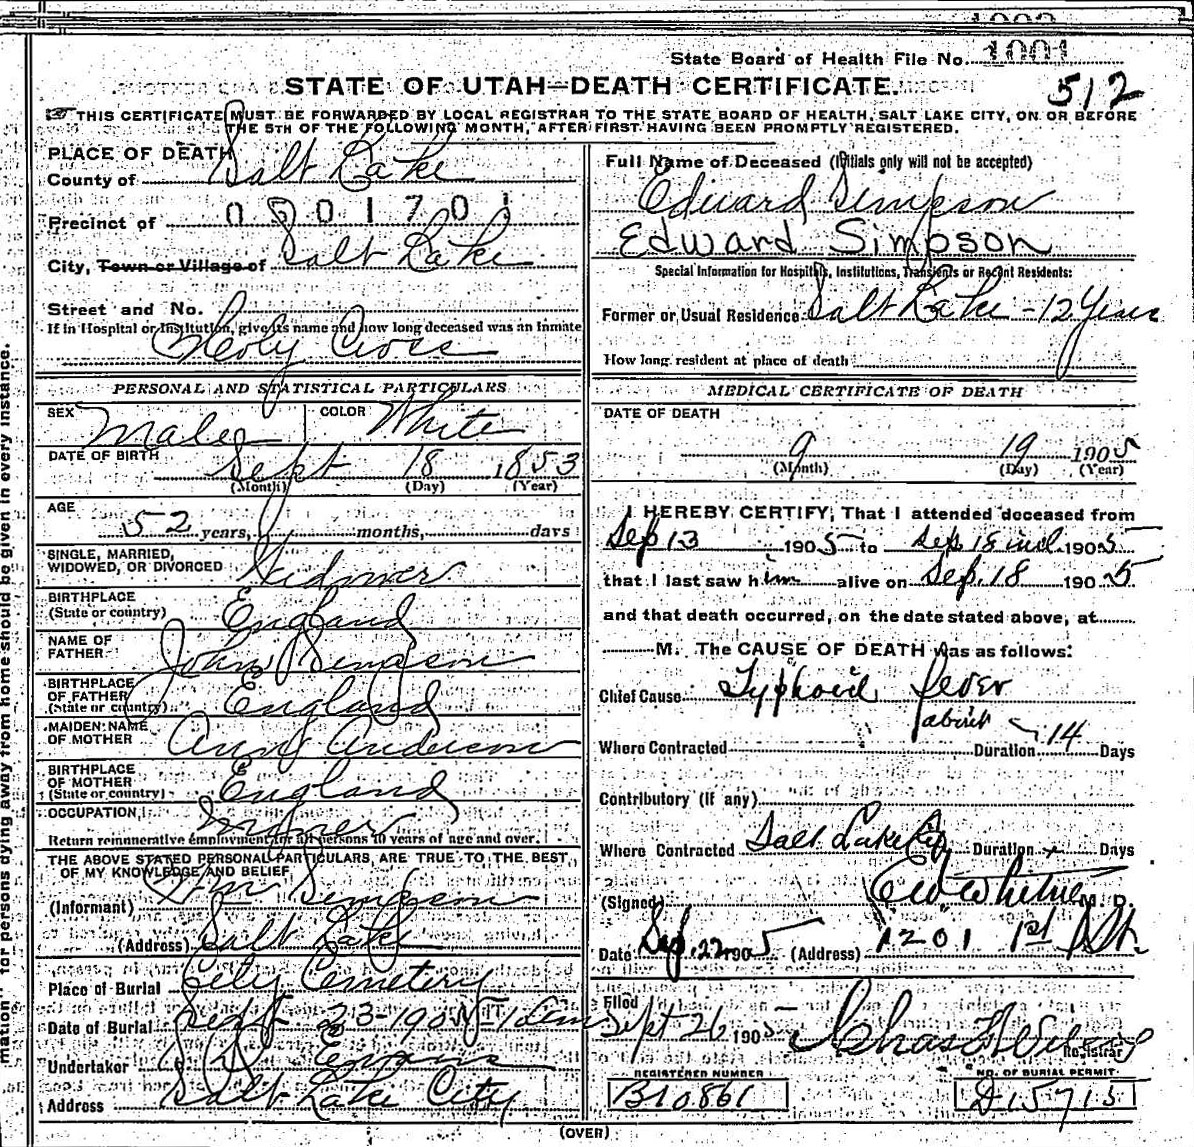 State Board of Health File No. 1001
STATE OF UTAH—DEATH CERTIFICATE.
512
THIS CERTIFICATE MUST BE FORWARDED BY LOCAL REGISTRAR TO THE STATE BOARD OF HEALTH, SALT LAKE CITY, ON OR BEFORE
THE 5TH OF THE FOLLOWING MONTH, AFTER FIRST HAVING BEEN PROMPTLY REGISTERED.
PLACE OF DEATH
County of Salt Lake
Precinct of 0501701
City, Town or Village of Salt Lake
Street and No.
If in Hospital or Institution, give its name and how long deceased was an Inmate
Holy Cross
PERSONAL AND STATISTICAL PARTICULARS
SEX Male COLOR White
DATE OF BIRTH
Sept 18 1853
(Month) (Day) (Year)
AGE
52 years, months, days
SINGLE, MARRIED,
WIDOWED, OR DIVORCED Widower
BIRTHPLACE
(State or country) England
NAME OF
FATHER John Simpson
BIRTHPLACE
OF FATHER
(State or country) England
MAIDEN NAME
OF MOTHER Ann Anderson
BIRTHPLACE
OF MOTHER
(State or country) England
OCCUPATION
Return remunerative employment for all persons 10 years of age and over.
THE ABOVE STATED PERSONAL PARTICULARS, ARE TRUE TO THE BEST
OF MY KNOWLEDGE AND BELIEF
(Informant) Wm Simpson
(Address) Salt Lake
Place of Burial City Cemetery
Date of Burial Sept 23-1905
Undertaker Evans
Address Salt Lake City
Full Name of Deceased (Initials only will not be accepted)
Edward Simpson
Edward Simpson
Special Information for Hospitals, Institutions, Transients or Recent Residents:
Former or Usual Residence Salt Lake - 12 Years
How long resident at place of death
MEDICAL CERTIFICATE OF DEATH
DATE OF DEATH
9 19 1905
(Month) (Day) (Year)
I HEREBY CERTIFY, That I attended deceased from
Sep 13 1905 to Sep. 18 incl. 1905
that I last saw him alive on Sep. 18 1905
and that death occurred, on the date stated above, at
M. The CAUSE OF DEATH was as follows:
Chief Cause Typhoid fever
Where Contracted Duration about 14 Days
Contributory (if any)
Where Contracted Salt Lake City Duration Days
(Signed) M. D.
Date Sep. 22 1905 (Address) 1201 1st St.
Filed
Sept 26 1905
Registrar
REGISTERED NUMBER
B10861
NO. OF BURIAL PERMIT
D15715
(OVER)
mation" for persons dying away from home should be given in every instance.